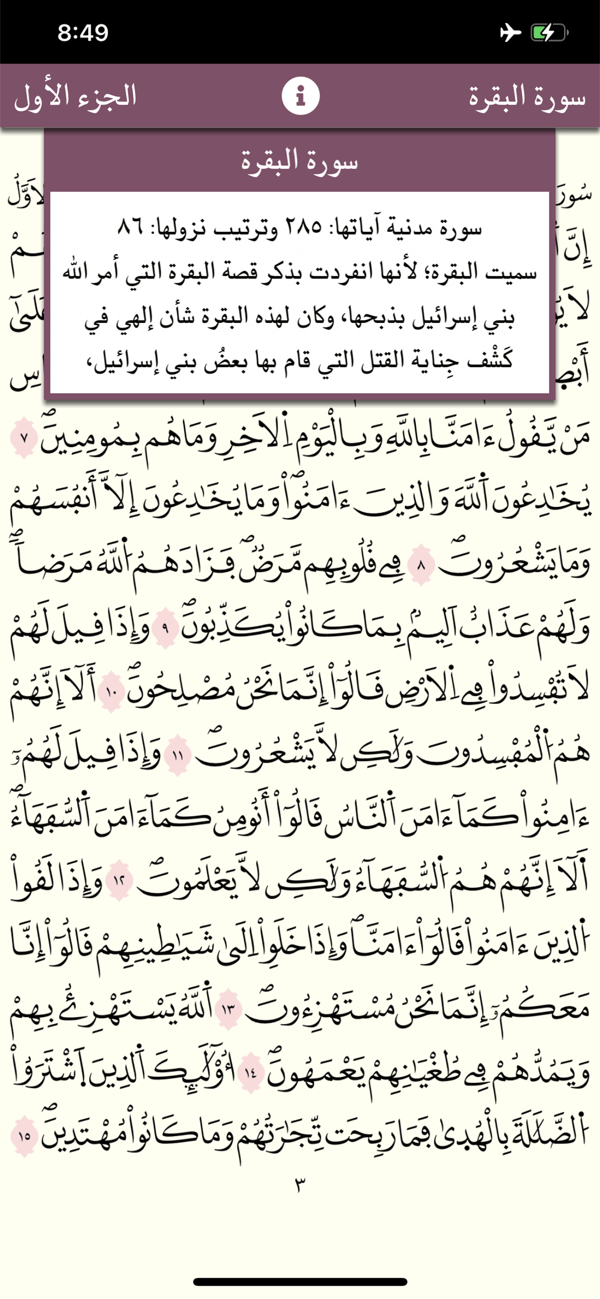 8:49
سورة البقرة i الجزء الأول
سورة البقرة
سورة مدنية آياتها: ٢٨٥ وترتيب نزولها: ٨٦
سميت البقرة؛ لأنها انفردت بذكر قصة البقرة التي أمر الله
بني إسرائيل بذبحها، وكان لهذه البقرة شأن إلهي في
كَشْف جِناية القتل التي قام بها بعضُ بني إسرائيل،
مَنْ يَّقُولُ ءَامَنَّا بِاللَّهِ وَبِالْيَوْمِ اِلَاخِرِ وَمَا هُم بِمُومِنِينَۖ ٧
يُخَٰدِعُونَ اَللَّهَ وَالذِينَ ءَامَنُواْۖ وَمَا يُخَٰدِعُونَ إِلَّآ أَنفُسَهُمْ
وَمَا يَشْعُرُونَۖ ٨ فِے قُلُوبِهِم مَّرَضٞۖ فَزَادَهُمُ اُللَّهُ مَرَضاٗۖ
وَلَهُمْ عَذَابٌ اَلِيمُۢ بِمَا كَانُواْ يُكَذِّبُونَۖ ٩ وَإِذَا قِيلَ لَهُمْ
لَا تُفْسِدُواْ فِے اِلَارْضِ قَالُوٓاْ إِنَّمَا نَحْنُ مُصْلِحُونَۖ ١٠ أَلَآ إِنَّهُمْ
هُمُ اُلْمُفْسِدُونَ وَلَٰكِن لَّا يَشْعُرُونَۖ ١١ وَإِذَا قِيلَ لَهُمُۥٓ
ءَامِنُواْ كَمَآ ءَامَنَ اَلنَّاسُ قَالُوٓاْ أَنُومِنُ كَمَآ ءَامَنَ اَلسُّفَهَآءُۖ
اَلَآ إِنَّهُمْ هُمُ اُلسُّفَهَآءُ وَلَٰكِن لَّا يَعْلَمُونَۖ ١٢ وَإِذَا لَقُواْ
اُلذِينَ ءَامَنُواْ قَالُوٓاْ ءَامَنَّاۖ وَإِذَا خَلَوِاْ اِلَىٰ شَيَٰطِينِهِمْ قَالُوٓاْ إِنَّا
مَعَكُمُۥٓ إِنَّمَا نَحْنُ مُسْتَهْزِءُونَۖ ١٣ اَللَّهُ يَسْتَهْزِۓُ بِهِمْ
وَيَمُدُّهُمْ فِے طُغْيَٰنِهِمْ يَعْمَهُونَۖ ١٤ أُوْلَٰٓئِكَ اَلذِينَ اَشْتَرَوُاْ
اُلضَّلَٰلَةَ بِالْهُدىٰ فَمَا رَبِحَت تِّجَٰرَتُهُمْ وَمَا كَانُواْ مُهْتَدِينَۖ ١٥
٣